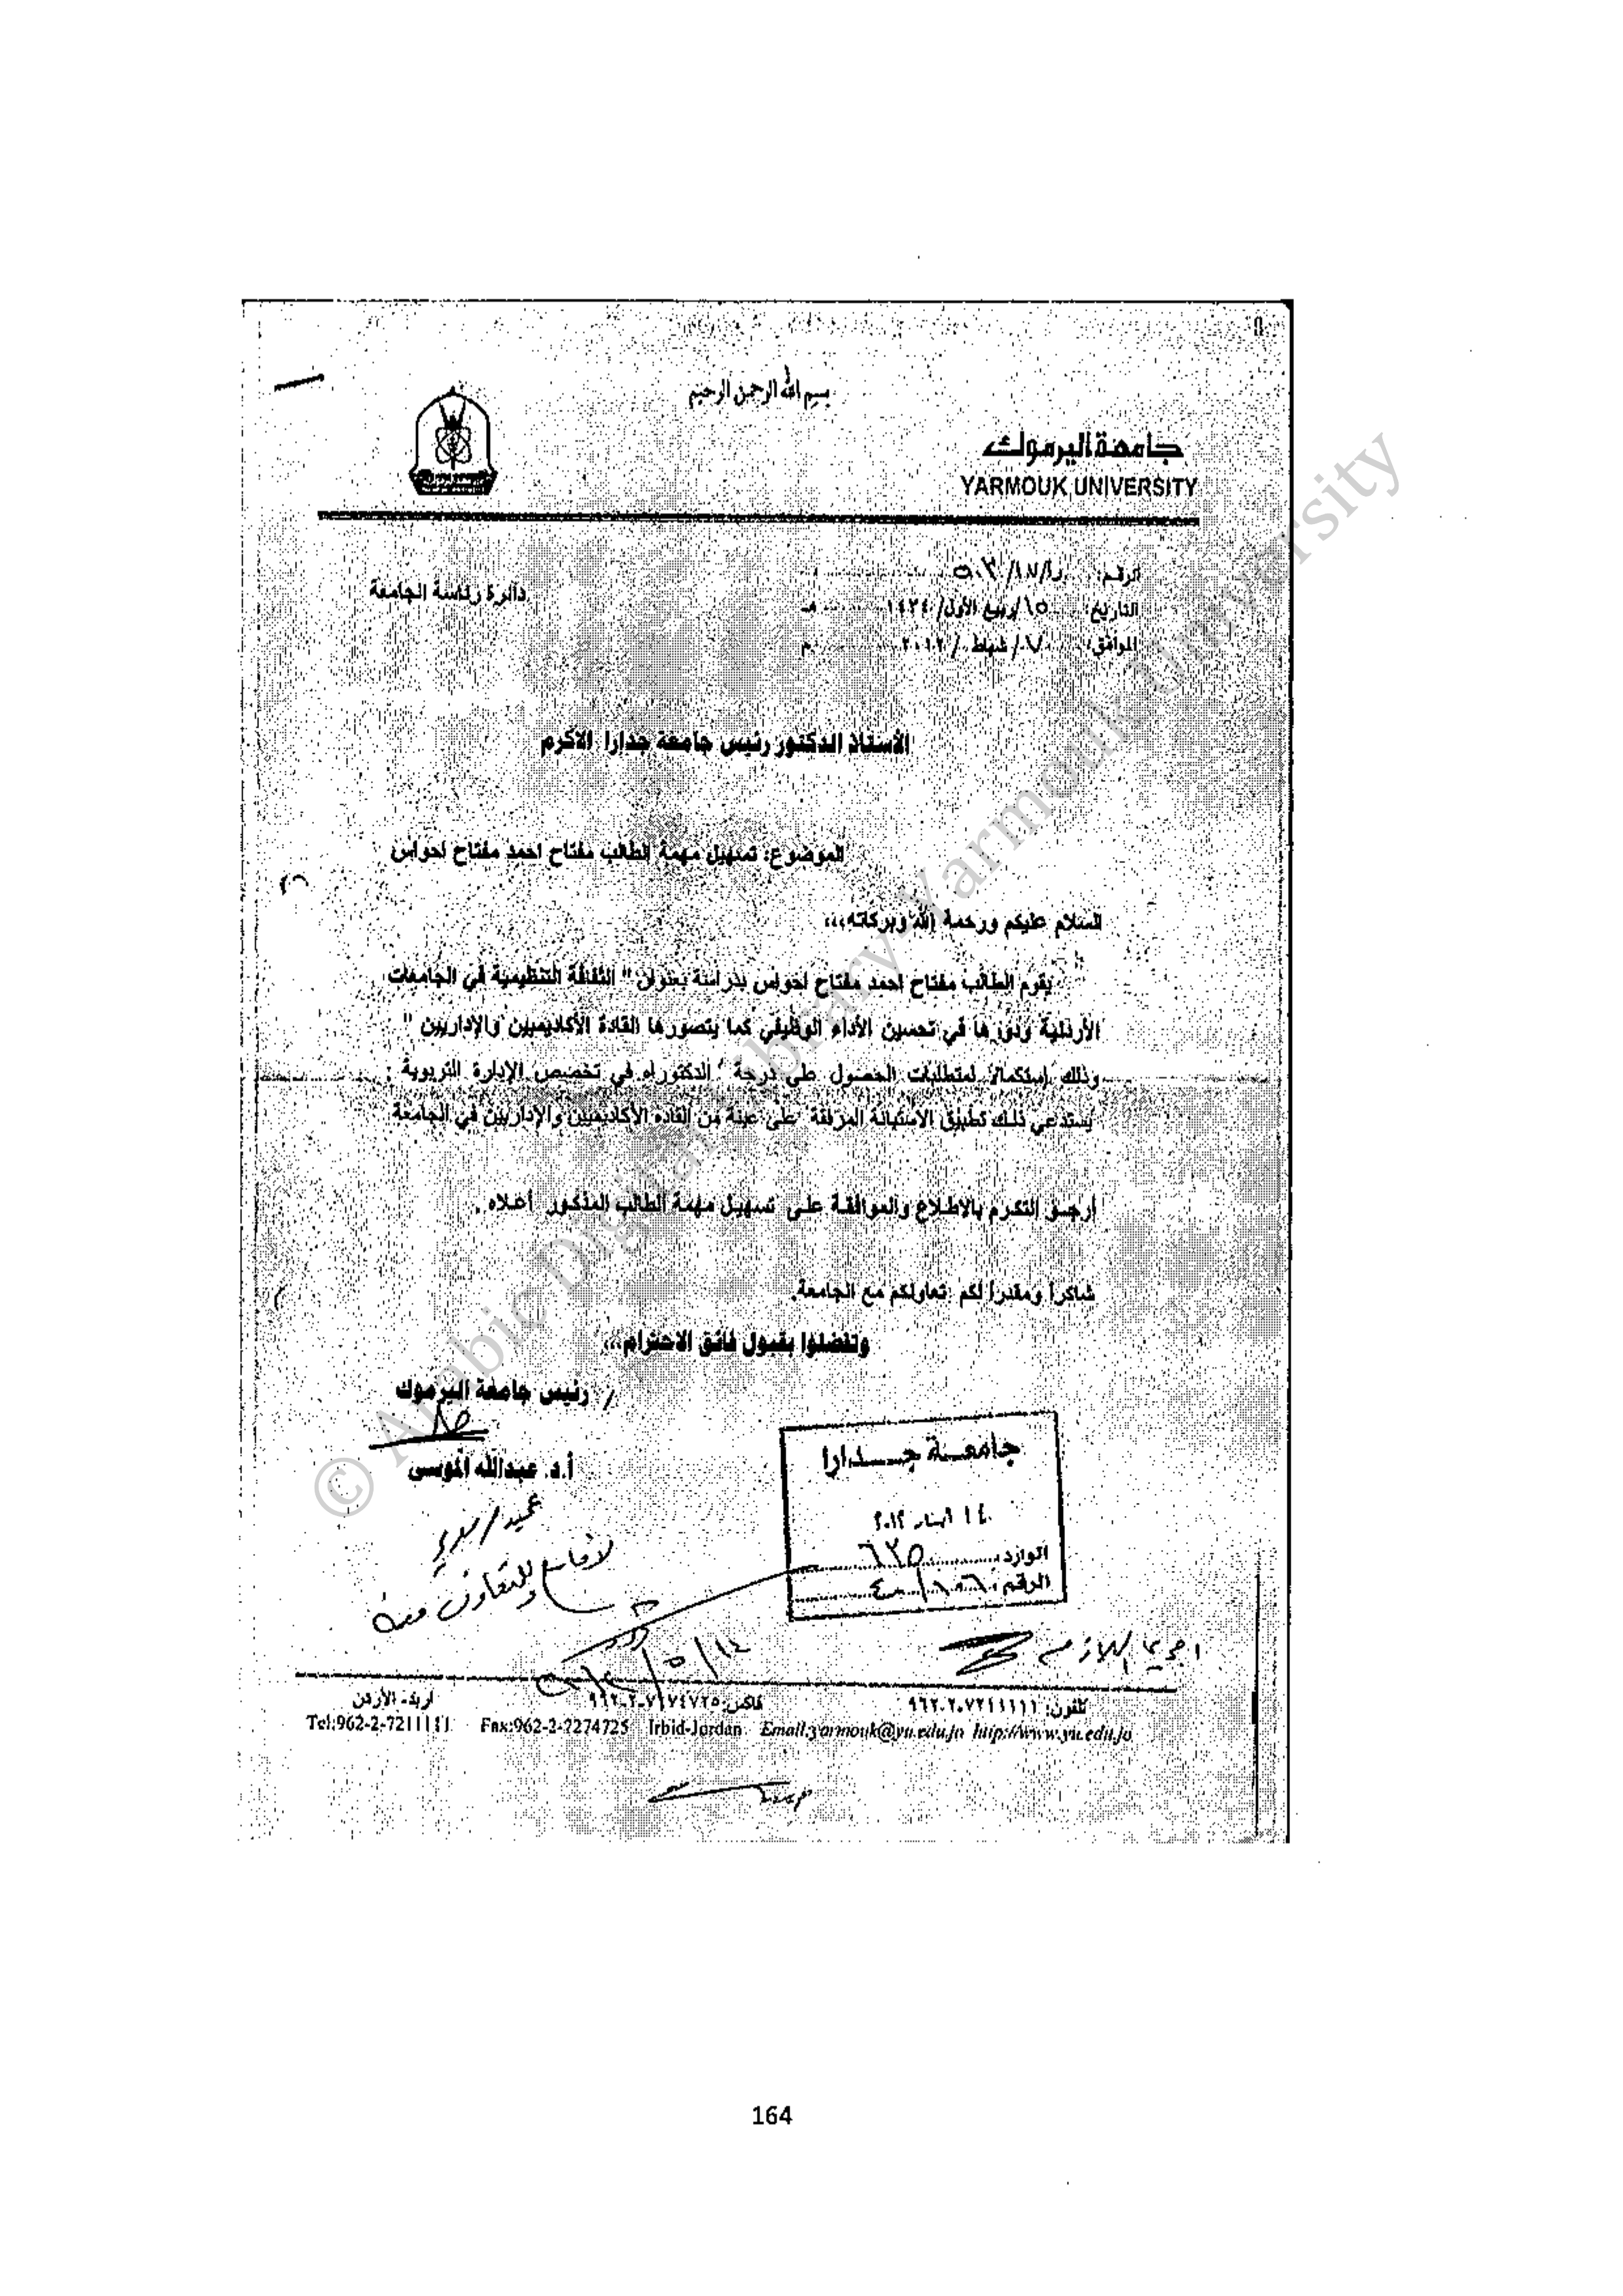 بسم الله الرحمن الرحيم
جامعة اليرموك
YARMOUK UNIVERSITY
دائرة رئاسة الجامعة
الرقم:
التاريخ: ١٥/ربيع الأول/١٤٣٤ هـ
الموافق: /شباط/ م
الأستاذ الدكتور رئيس جامعة جدارا الأكرم
الموضوع: تسهيل مهمة الطالب مفتاح احمد مفتاح احواس
السلام عليكم ورحمة الله وبركاته،،،
يقوم الطالب مفتاح احمد مفتاح احواس بدراسة بعنوان " الثقافة التنظيمية في الجامعات
الأردنية ودورها في تحسين الأداء الوظيفي كما يتصورها القادة الأكاديميين والإداريين "
وذلك إستكمالا لمتطلبات الحصول على درجة الدكتوراه في تخصص الإدارة التربوية
يستدعي ذلك تطبيق الاستبانة المرفقة على عينة من القادة الأكاديميين والإداريين في الجامعة
أرجو التكرم بالاطلاع والموافقة على تسهيل مهمة الطالب المذكور أعلاه .
شاكراً ومقدراً لكم تعاونكم مع الجامعة.
وتفضلوا بقبول فائق الاحترام،،،
/ رئيس جامعة اليرموك
أ.د. عبدالله الموسى
جامعة جدارا
الوارد: ٦٢٥
الرقم:
للتعاون معه
اجراء اللازم
تلفون: ٩٦٢-٢-٧٢١١١١١ فاكس: ٩٦٢-٢-٧٢٧٤٧٢٥ أربد- الأردن
Tel:962-2-7211111 Fax:962-2-7274725 Irbid-Jordan Email:yarmouk@yu.edu.jo http://www.yu.edu.jo
© Arabic Digital Library-Yarmouk University
164